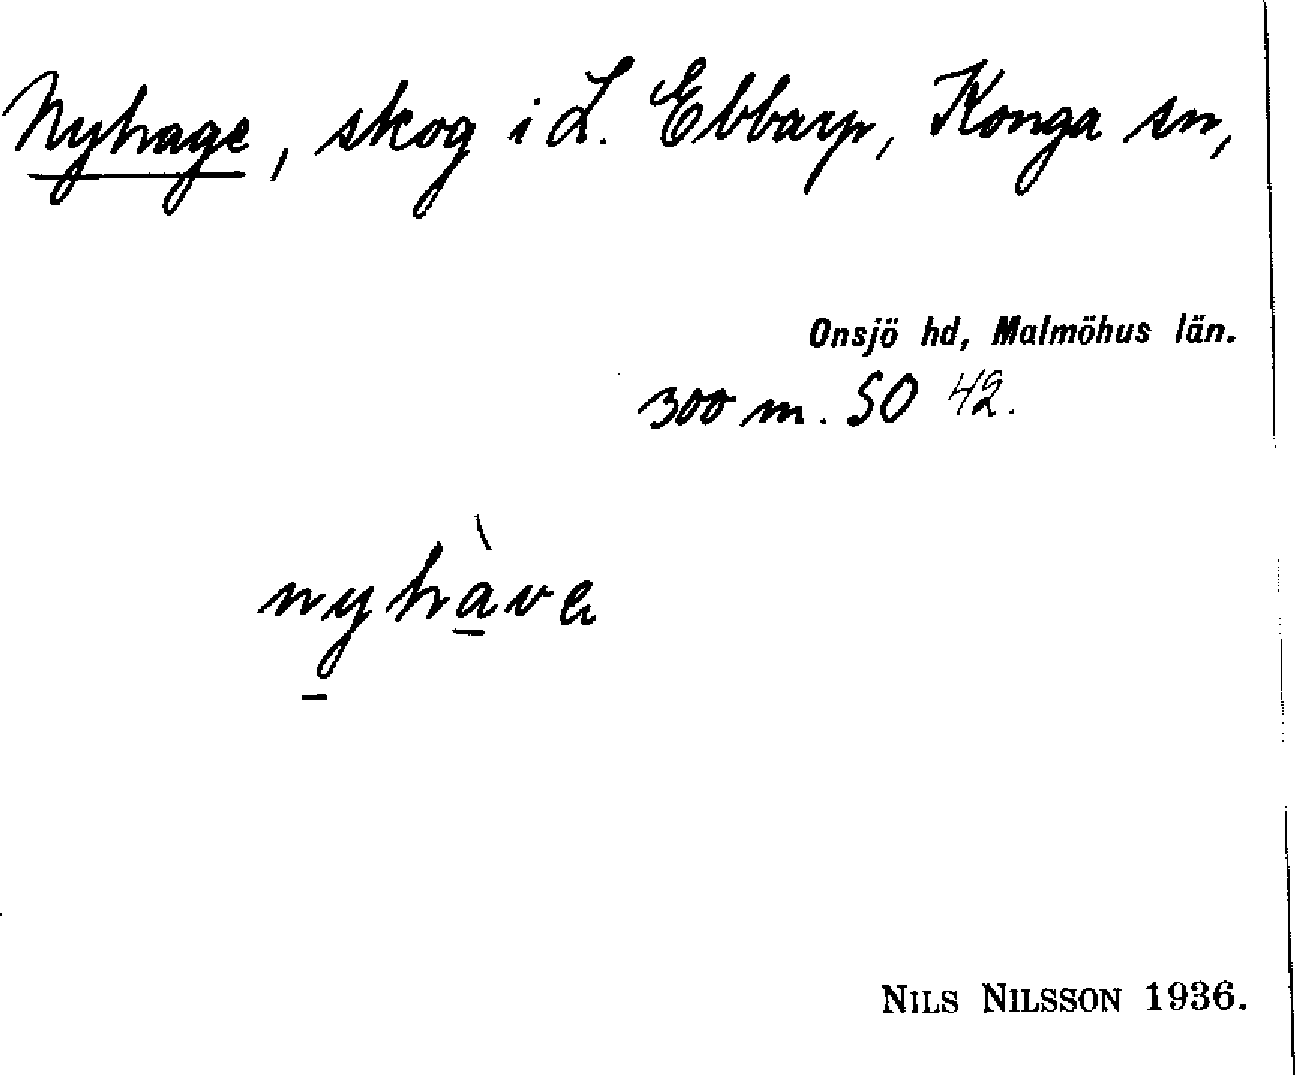 Nyhage, skog i L. Ebbarp, Konga sn,
Onsjö hd, Malmöhus län.
300 m. SO 42.
nyhàva
NILS NILSSON 1936.